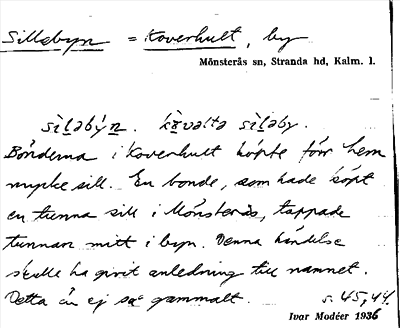 Sillabyn = Koverhult, by
Mönsterås sn, Stranda hd, Kalm. l.
sìḷabýn. sìḷaby.
Bönderna i Koverhult köpte förr hem
mycke sill. En bonde, som hade köpt
en tunna sill i Mönsterås, tappade
tunnan mitt i byn. Denna händelse
skulle ha givit anledning till namnet.
Detta än ej så gammalt. s. 45, 44.
Ivar Modéer 1936